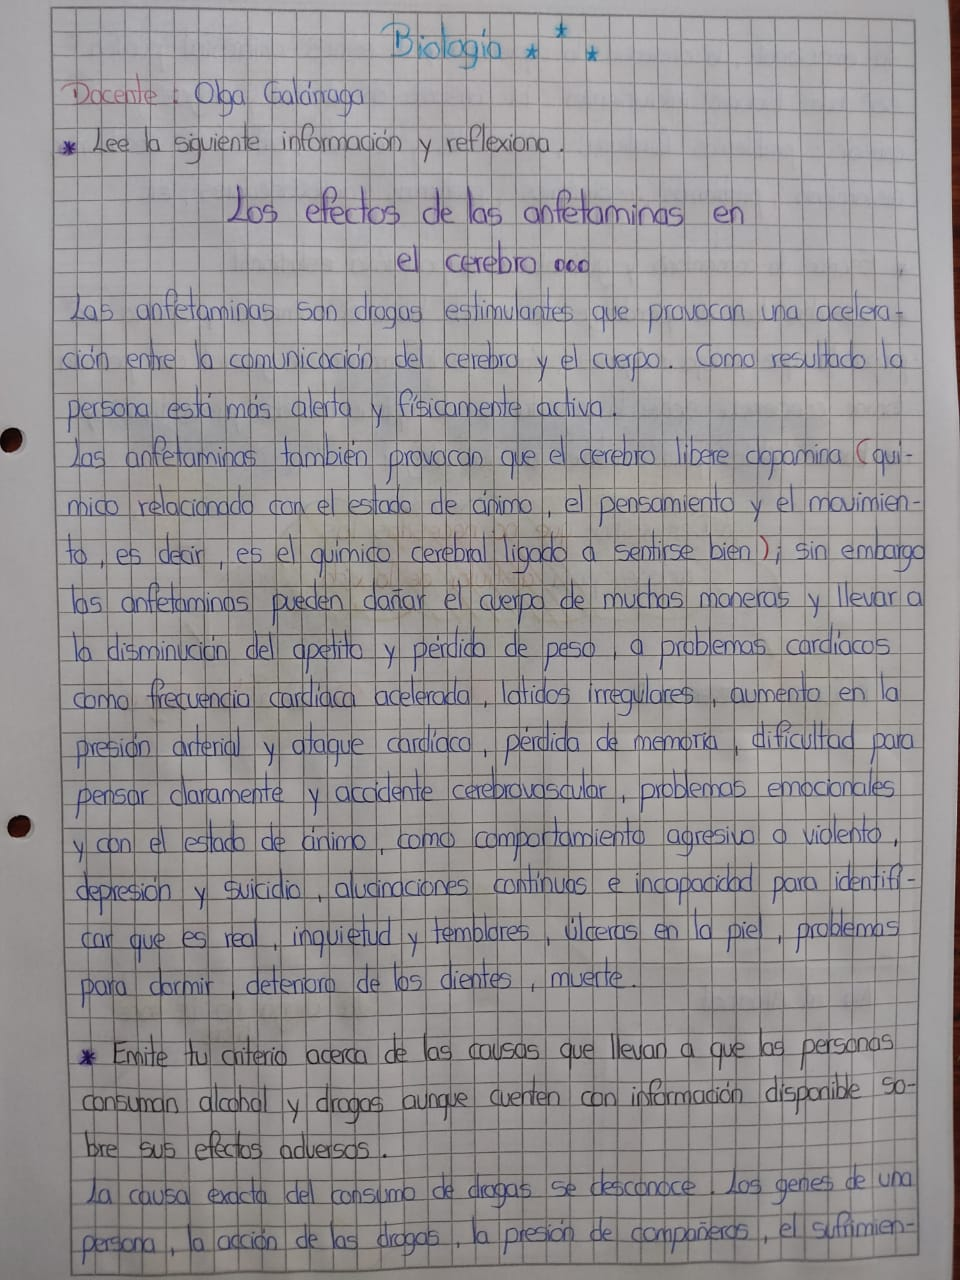 Biología
Docente: Olga Galárraga
* Lee la siguiente información y reflexiona.
Los efectos de las anfetaminas en
el cerebro ooo
Las anfetaminas son drogas estimulantes que provocan una acelera-
ción entre la comunicación del cerebro y el cuerpo. Como resultado la
persona está más alerta y físicamente activa.
Las anfetaminas también provocan que el cerebro libere dopamina (quí-
mico relacionado con el estado de ánimo, el pensamiento y el movimien-
to, es decir, es el químico cerebral ligado a sentirse bien); sin embargo
las anfetaminas pueden dañar el cuerpo de muchas maneras y llevar a
la disminución del apetito y pérdida de peso, a problemas cardíacos
como frecuencia cardíaca acelerada, latidos irregulares, aumento en la
presión arterial y ataque cardíaco, pérdida de memoria, dificultad para
pensar claramente y accidente cerebrovascular, problemas emocionales
y con el estado de ánimo, como comportamiento agresivo o violento,
depresión y suicidio, alucinaciones continuas e incapacidad para identifi-
car que es real, inquietud y temblores, úlceras en la piel, problemas
para dormir, deterioro de los dientes, muerte.
* Emite tu criterio acerca de las causas que llevan a que las personas
consuman alcohol y drogas aunque cuenten con información disponible so-
bre sus efectos adversos.
La causa exacta del consumo de drogas se desconoce. Los genes de una
persona, la acción de las drogas, la presión de compañeros, el sufrimien-